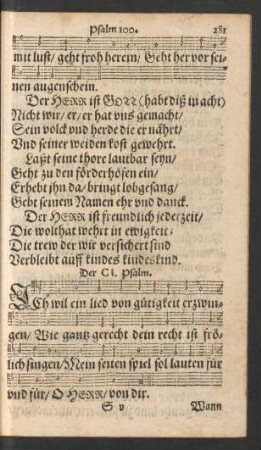 Psalm 100. 281
mit lust/ geht froh herein/ Geht her vor sei-
nen augenschein.
Der HERR ist GOTT (habt diß in acht)
Nicht wir/ er/ er hat vns gemacht/
Sein volck vnd herde die er nährt/
Vnd seiner weiden kost gewehrt.
Laßt seine thore lautbar seyn/
Geht zu den förderhöfen ein/
Erhebt jhn da/ bringt lobgesang/
Gebt seinem Namen ehr vnd danck.
Der HERR ist freundlich jederzeit/
Die wolthat wehrt in ewigkeit:
Die trew der wir versichert sind
Verbleibt auff kindes kindeskind.
Der CI. Psalm.
ICh wil ein lied von gütigkeit erzwin-
gen/ Wie gantz gerecht dein recht ist frö-
lich singen/ Mein seiten spiel sol lauten für
vnd für/ O HERR/ von dir.
S v Wann